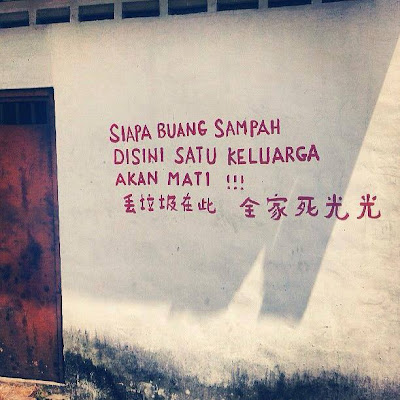 SIAPA BUANG SAMPAH
DISINI SATU KELUARGA
AKAN MATI !!!
丢垃圾在此 全家死光光